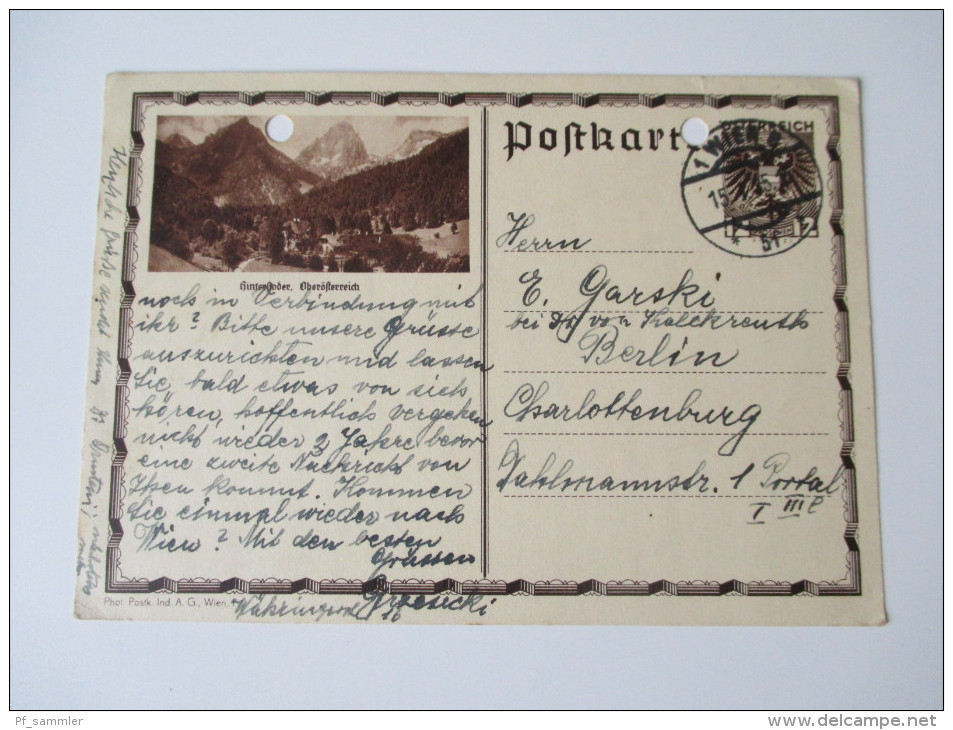 Postkart
ÖSTERREICH
1 WIEN
Hinterstoder, Oberösterreich
noch in Verbindung mit
ihr? Bitte unsere Grüsse
auszurichten und lassen
Sie, bald etwas von sich
hören, hoffentlich vergehen
nicht wieder 2 Jahre bevor
eine zweite Nachricht von
Ihnen kommt. Kommen
Sie einmal wieder nach
Wien? Mit den besten
Grüssen
Herrn
E. Garski
bei von Kalckreuth
Berlin
Charlottenburg
Dahlmannstr. 1 Portal
I III
Phot. Postk. Ind. A. G., Wien.
Pf_sammler
www.delcampe.net